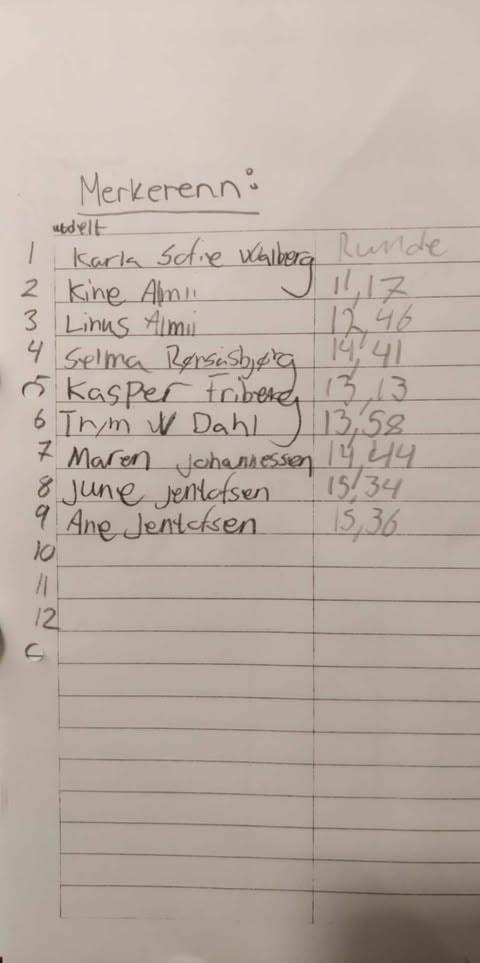 Merkerenn:
utdelt
1 Karla Sofie Walberg Runde
2 Kine Almli 11,17
3 Linus Almli 12,46
4 Selma 14,41
5 Kasper Friberg 13,13
6 W Dahl 13,58
7 Maren Johannessen 14,44
8 June Jentofsen 15,34
9 Ane Jentofsen 15,36
10
11
12